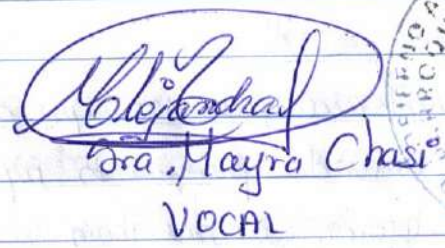 Alejandra
Sra. Mayra Chasi
VOCAL